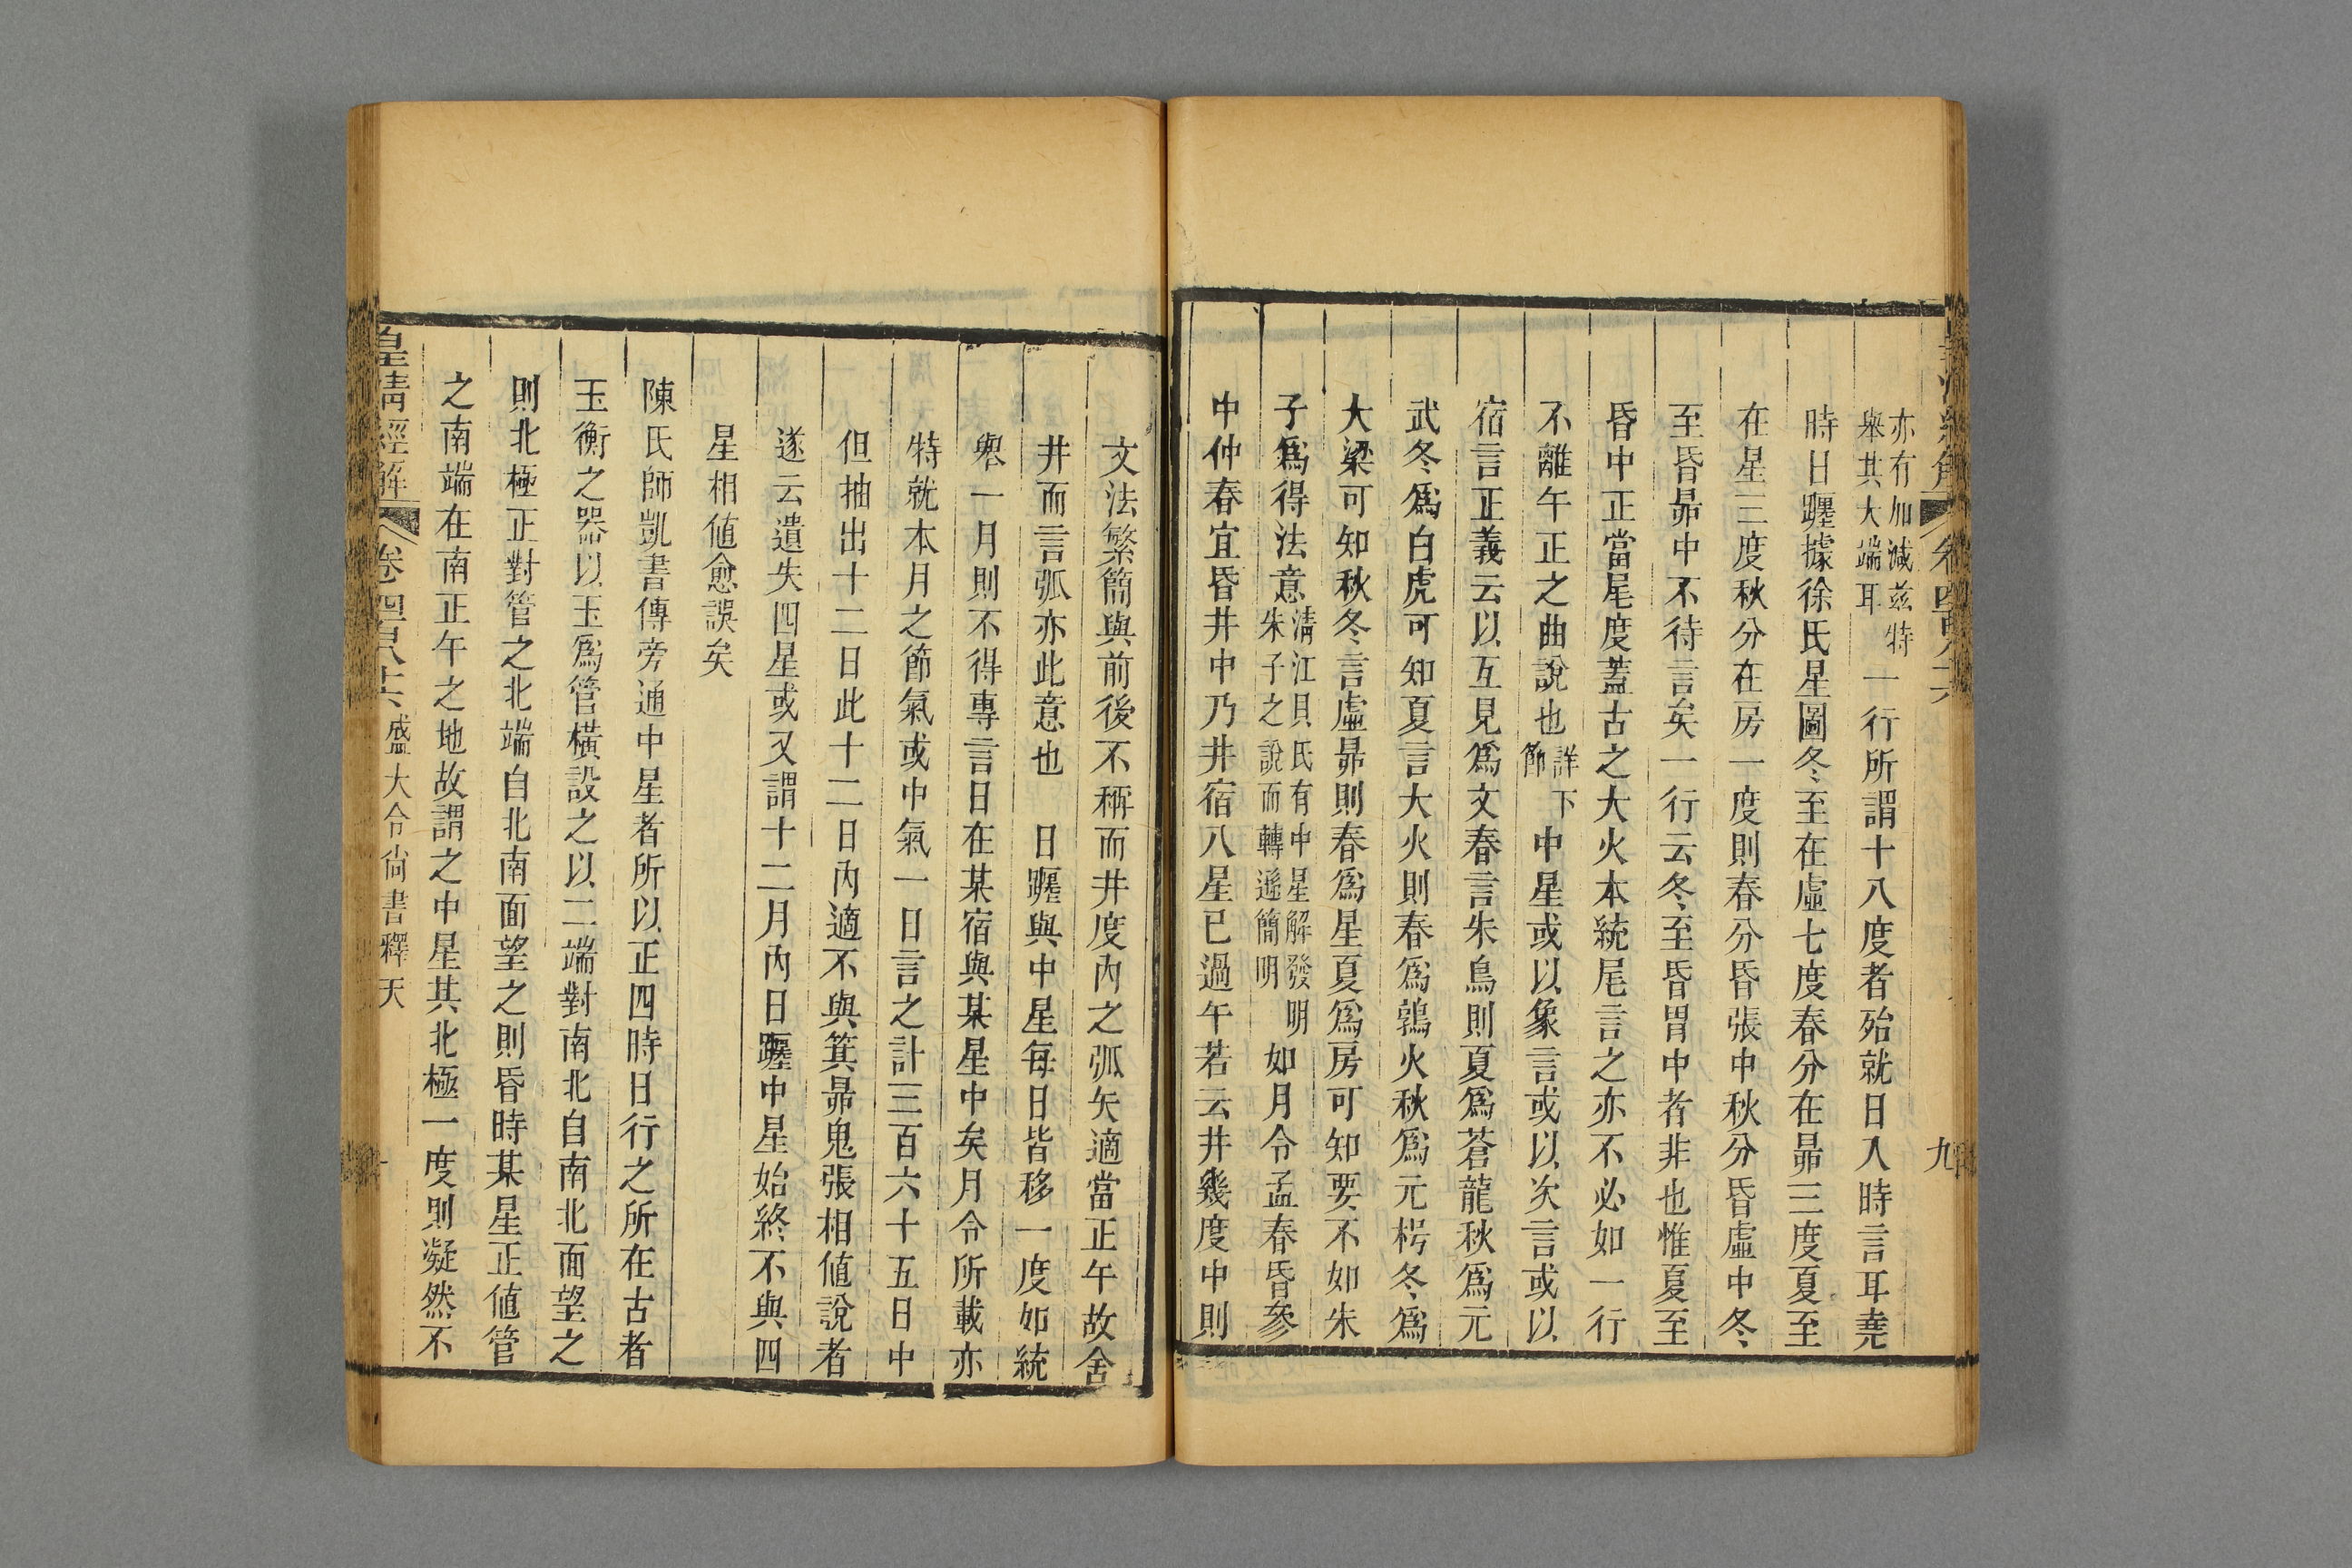 亦有加減茲特
舉其大端耳
一行所謂十八度者殆就日入時言耳堯
時日躔據徐氏星圖冬至在虛七度春分在昴三度夏至
在星三度秋分在房一度則春分昏張中秋分昏虛中冬
至昏昴中不待言矣一行云冬至昏胃中者非也惟夏至
昏中正當尾度蓋古之大火本統尾言之亦不必如一行
不離午正之曲說也
詳下
節
中星或以象言或以次言或以
宿言正義云以互見爲文春言朱鳥則夏爲蒼龍秋爲元
武冬爲白虎可知夏言大火則春爲鶉火秋爲元枵冬爲
大梁可知秋冬言虛昴則春爲星夏爲房可知要不如朱
子爲得法意
清江貝氏有中星解發明
朱子之說而轉遜簡明
如月令孟春昏參
中仲春宜昏井中乃井宿八星已過午若云井幾度中則
九
文法繁簡與前後不稱而井度內之弧矢適當正午故舍
井而言弧亦此意也　日躔與中星每日皆移一度如統
舉一月則不得專言日在某宿與某星中矣月令所載亦
特就本月之節氣或中氣一日言之計三百六十五日中
但抽出十二日此十二日內適不與箕昴鬼張相値說者
遂云遺失四星或又謂十二月內日躔中星始終不與四
星相値愈誤矣
陳氏師凱書傳旁通中星者所以正四時日行之所在古者
玉衡之器以玉爲管橫設之以二端對南北自南北面望之
則北極正對管之北端自北南面望之則昏時某星正値管
之南端在南正午之地故謂之中星其北極一度則凝然不
皇清經解
卷四百八十六
盛大令尙書釋天